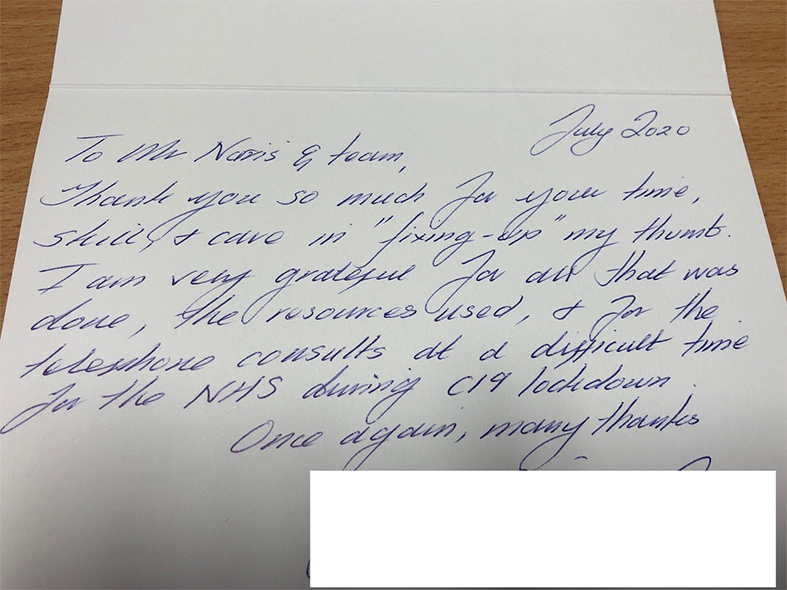 July 2020
To Mr Naris & team,
Thank you so much for your time,
skill, & care in "fixing-up" my thumb.
I am very grateful for all that was
done, the resources used, & for the
telephone consults at a difficult time
for the NHS during C19 lockdown.
Once again, many thanks